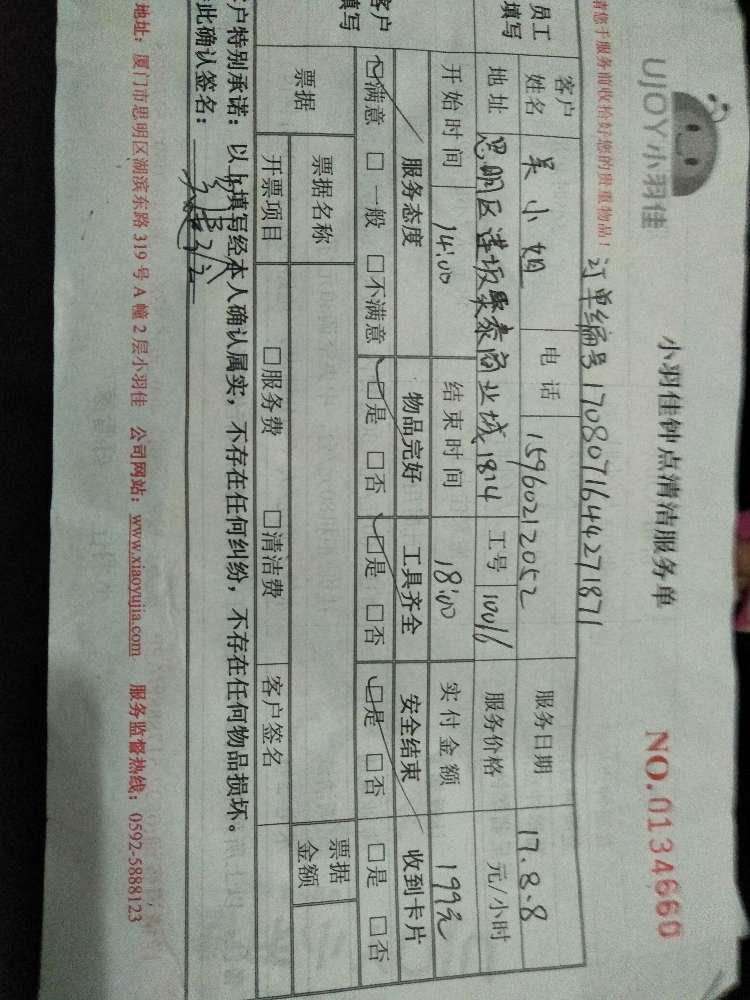 UJOY小羽佳
小羽佳钟点清洁服务单
NO.0134660
您于服务前收拾好您的贵重物品！
订单编号 1708071644271871
员工
填写
客户
姓名 吴小姐 电话 15960212052 服务日期 17.8.8
地址 思明区莲坂 泰商业城1814 工号 10016 服务价格 元/小时
开始时间 14:00 结束时间 18:00 实付金额 199元
客户
填写
服务态度 物品完好 工具齐全 安全结束 收到卡片
☑满意 □一般 □不满意 ☑是 □否 ☑是 □否 ☑是 □否 □是 □否
票据 票据名称 票据
金额
开票项目 □服务费 □清洁费 客户签名
户特别承诺：以上填写经本人确认属实，不存在任何纠纷，不存在任何物品损坏。
此确认签名：
地址：厦门市思明区湖滨东路319号A幢2层小羽佳 公司网站：www.xiaoyujia.com 服务监督热线：0592-5888123